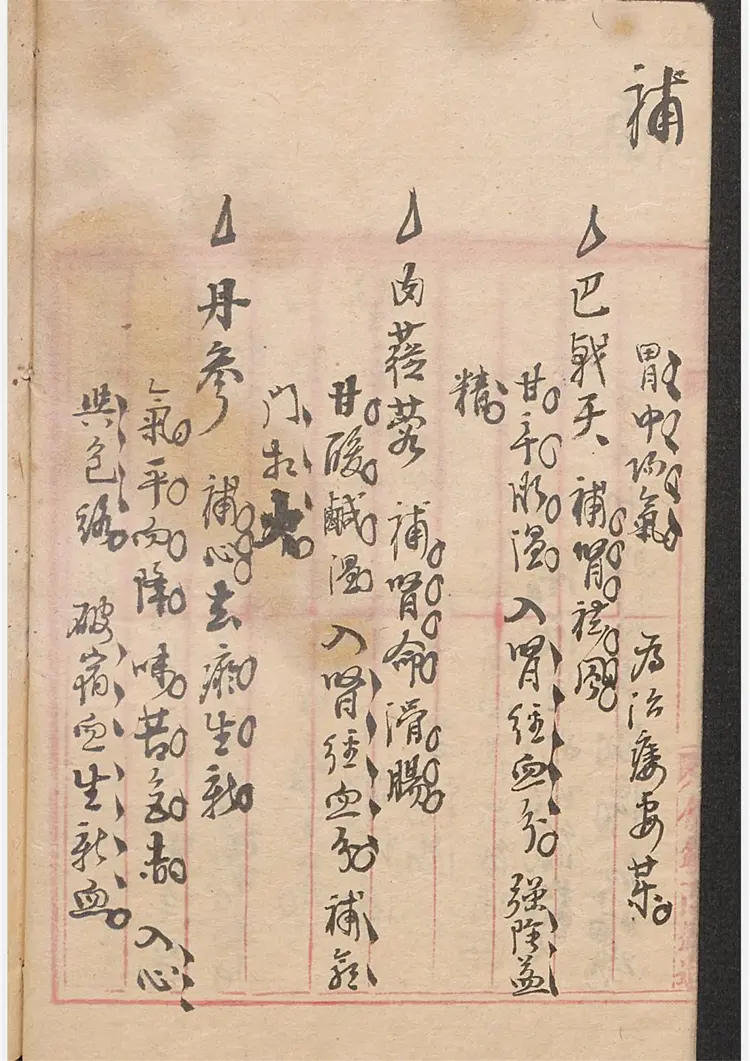 補
胃中氣 為治痿要藥
巴戟天 補腎祛風
甘辛微溫 入腎經血分 強陰益
精
肉蓯蓉 補腎命滑腸
甘酸鹹溫 入腎經血分 補命
門相火
丹參 補心去瘀生新
氣平而降 味苦色赤 入心
與包絡 破宿血生新血